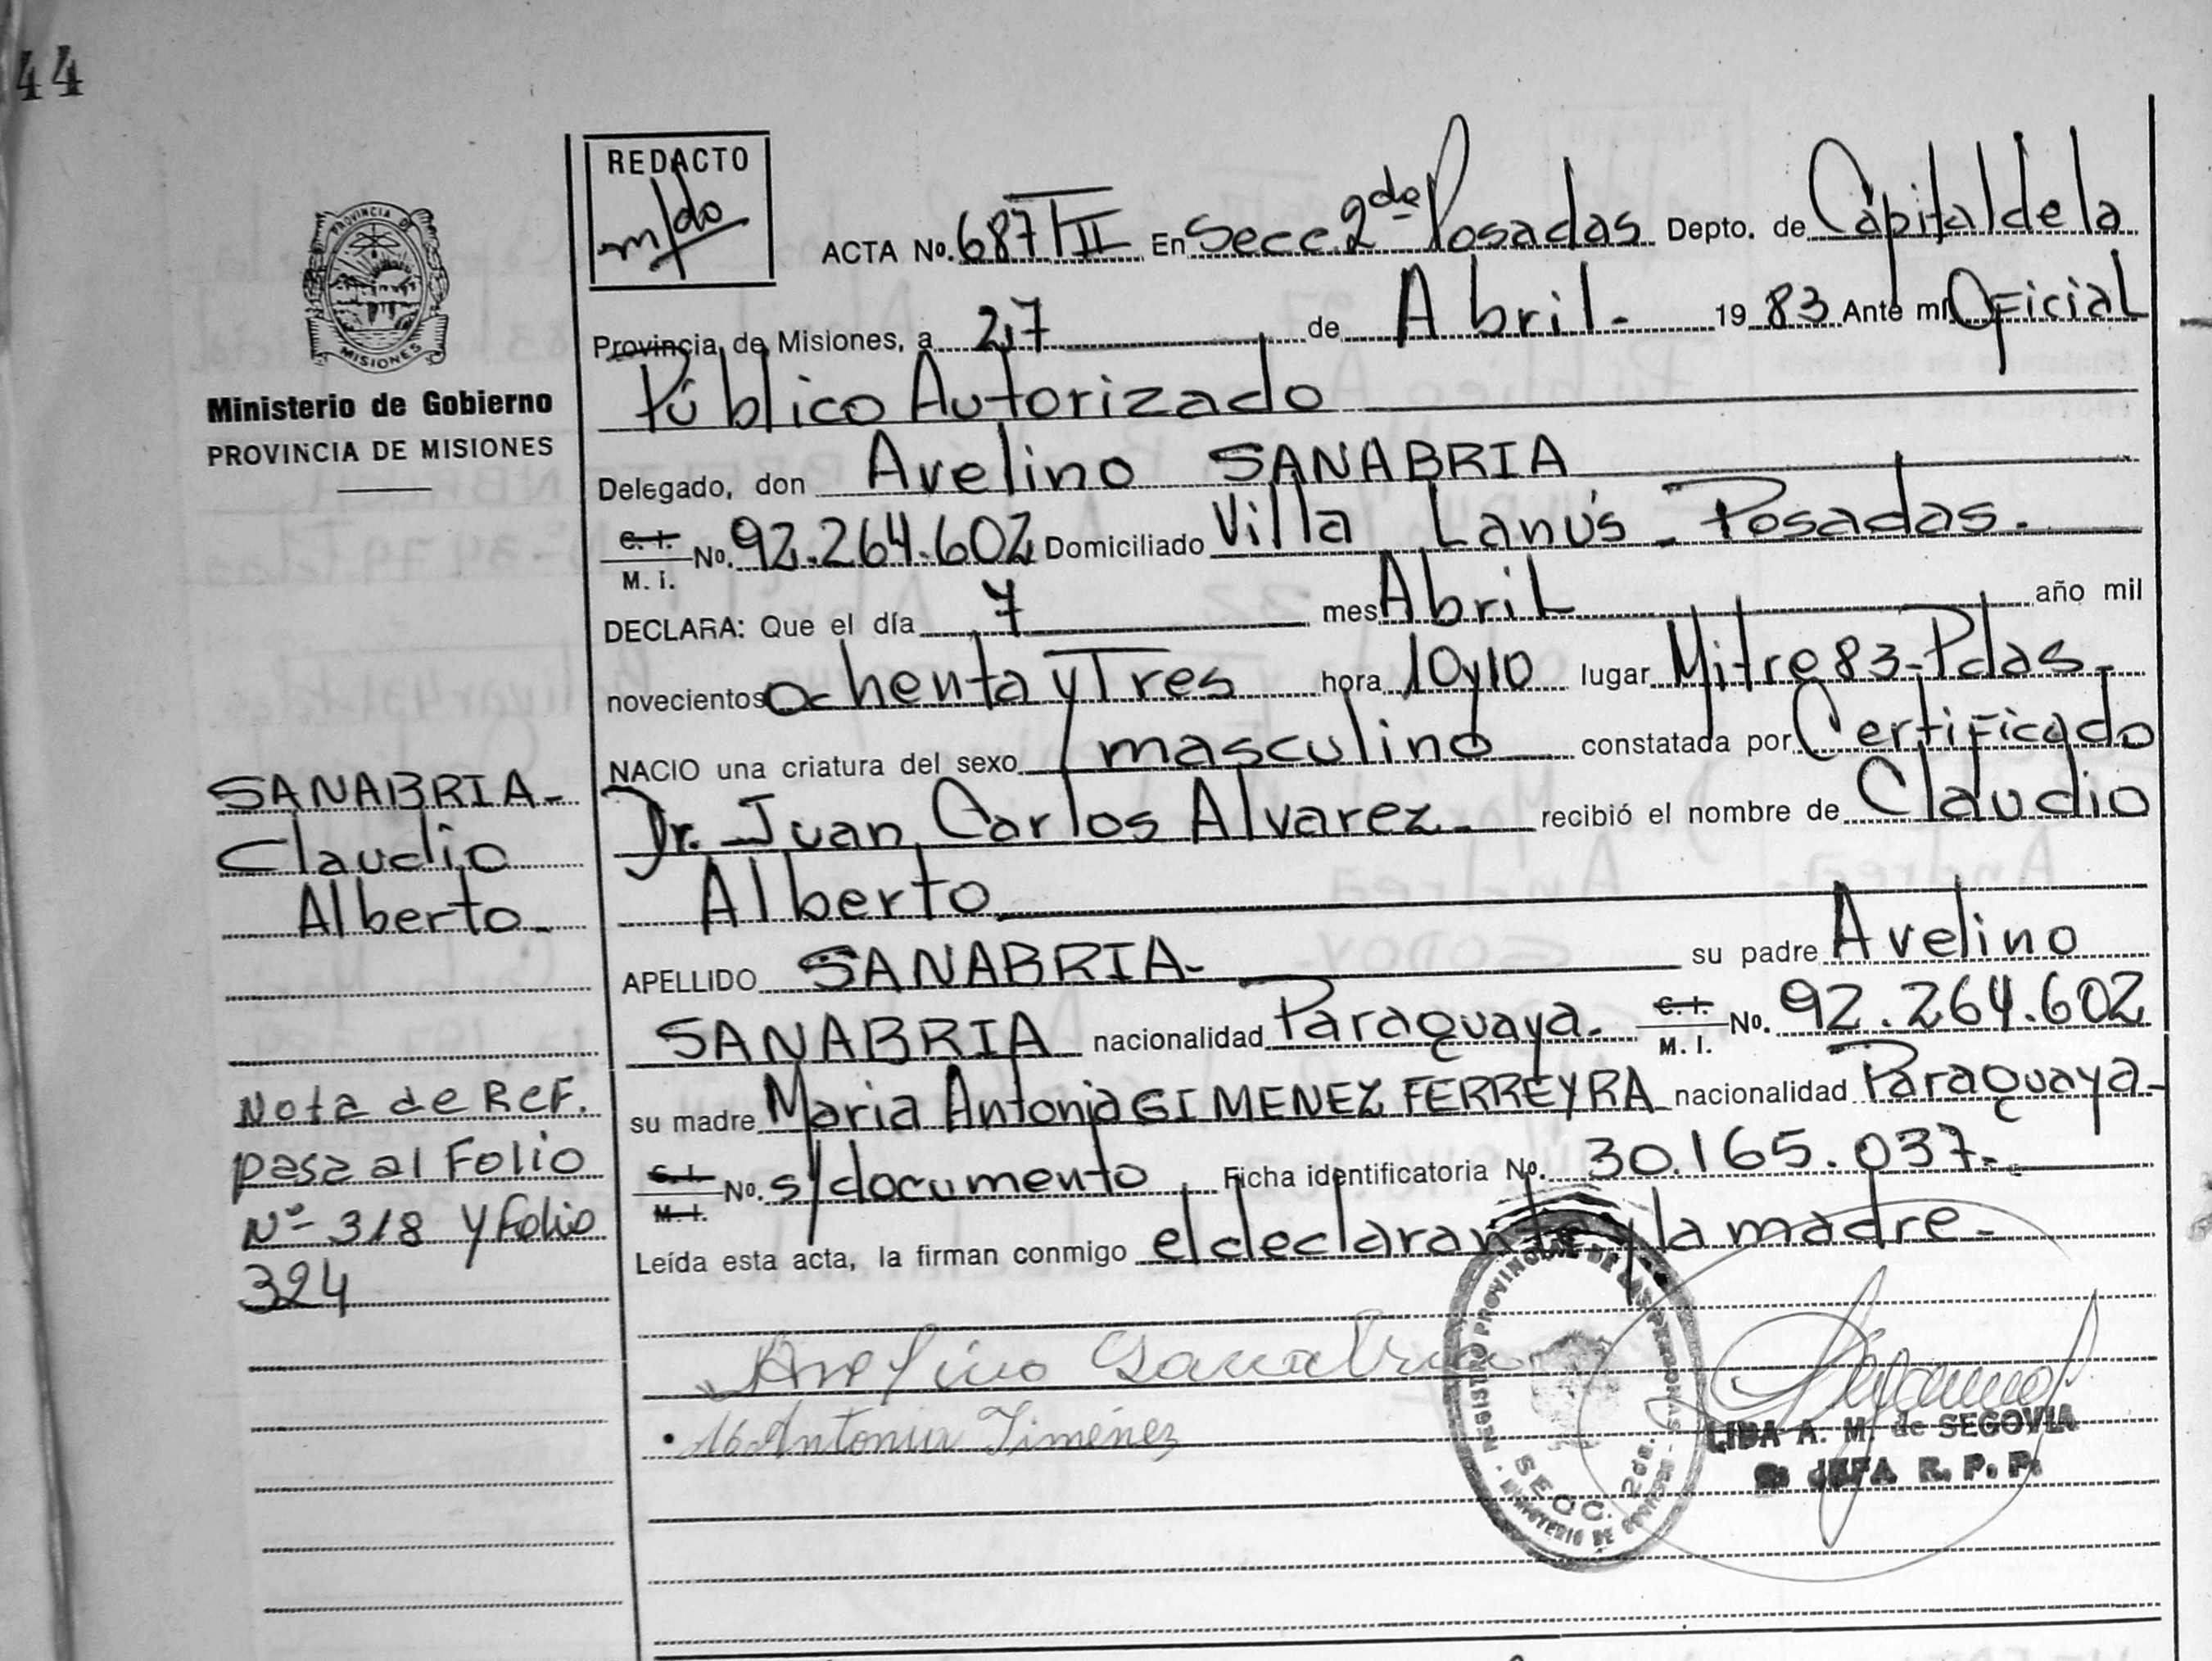 44
REDACTO
m/do
PROVINCIA DE
MISIONES
Ministerio de Gobierno
PROVINCIA DE MISIONES
ACTA No. 687 T/II En Secc. 2da Posadas Depto. de Capital de la
Provincia de Misiones, a 27 de Abril.- 19 83 Ante mí Oficial
Público Autorizado
Delegado, don Avelino SANABRIA
C. I. No. 92.264.602 Domiciliado Villa Lanús - Posadas.-
M. I.
DECLARA: Que el día 7 mes Abril año mil
novecientos ochenta y Tres hora 10y10 lugar Mitre 83-Pdas.-
NACIO una criatura del sexo masculino constatada por Certificado
Dr. Juan Carlos Alvarez.- recibió el nombre de Claudio
Alberto
APELLIDO SANABRIA- su padre Avelino
SANABRIA nacionalidad Paraguaya.- C. I. No. 92.264.602
M. I.
su madre Maria Antonia GIMENEZ FERREYRA nacionalidad Paraguaya-
C. I. No. s/documento Ficha identificatoria No. 30.165.037.-
M. I.
Leída esta acta, la firman conmigo el declarante y la madre.-
SANABRIA-
Claudio
Alberto-
Nota de Ref.
pasa al Folio
Nº- 318 y Folio
324
Avelino Sanabria
Ma Antonia Jiménez
REGISTRO PROVINCIAL DE LAS PERSONAS
SECC. 2da.
MINISTERIO DE GOBIERNO
LIDA A. M. de SEGOVIA
JEFA R. P. P.